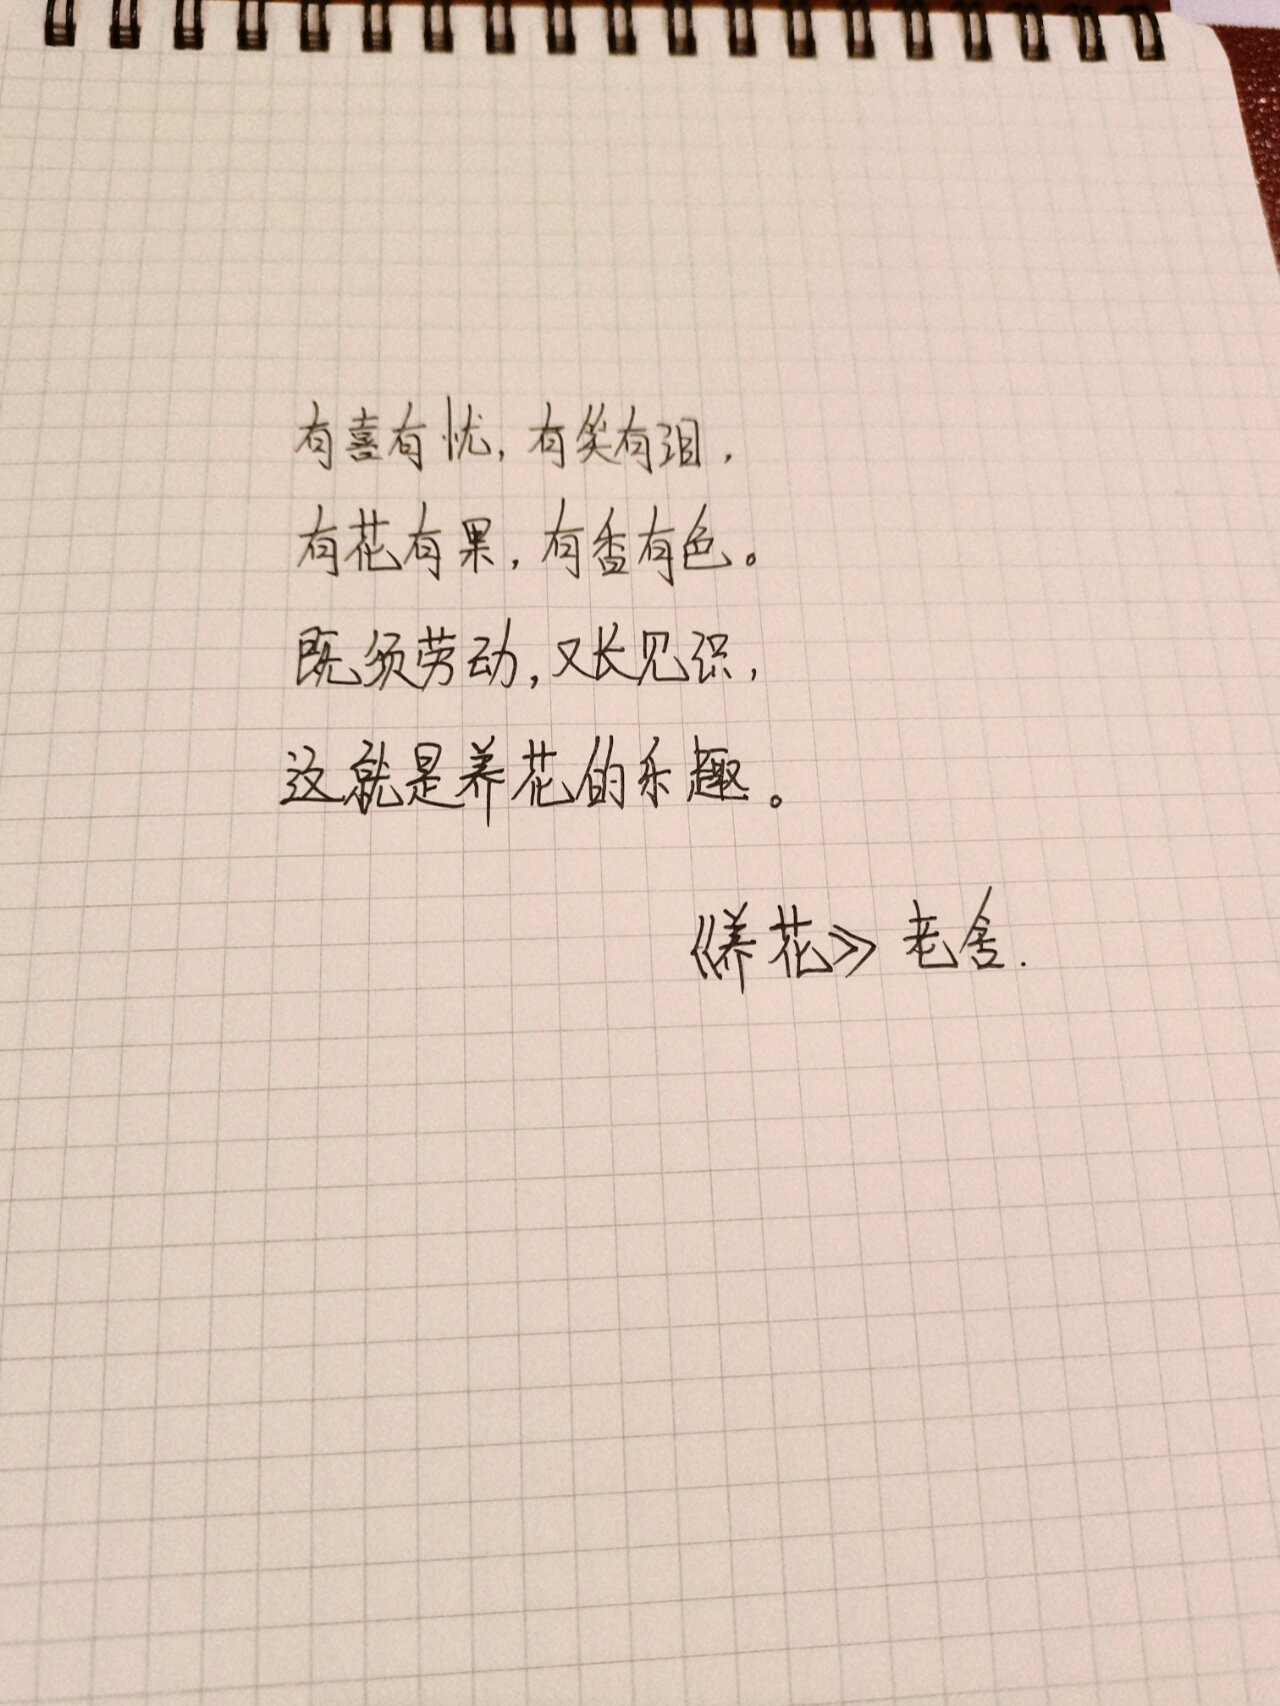 有喜有忧，有笑有泪，
有花有果，有香有色。
既须劳动，又长见识，
这就是养花的乐趣。
《养花》老舍.